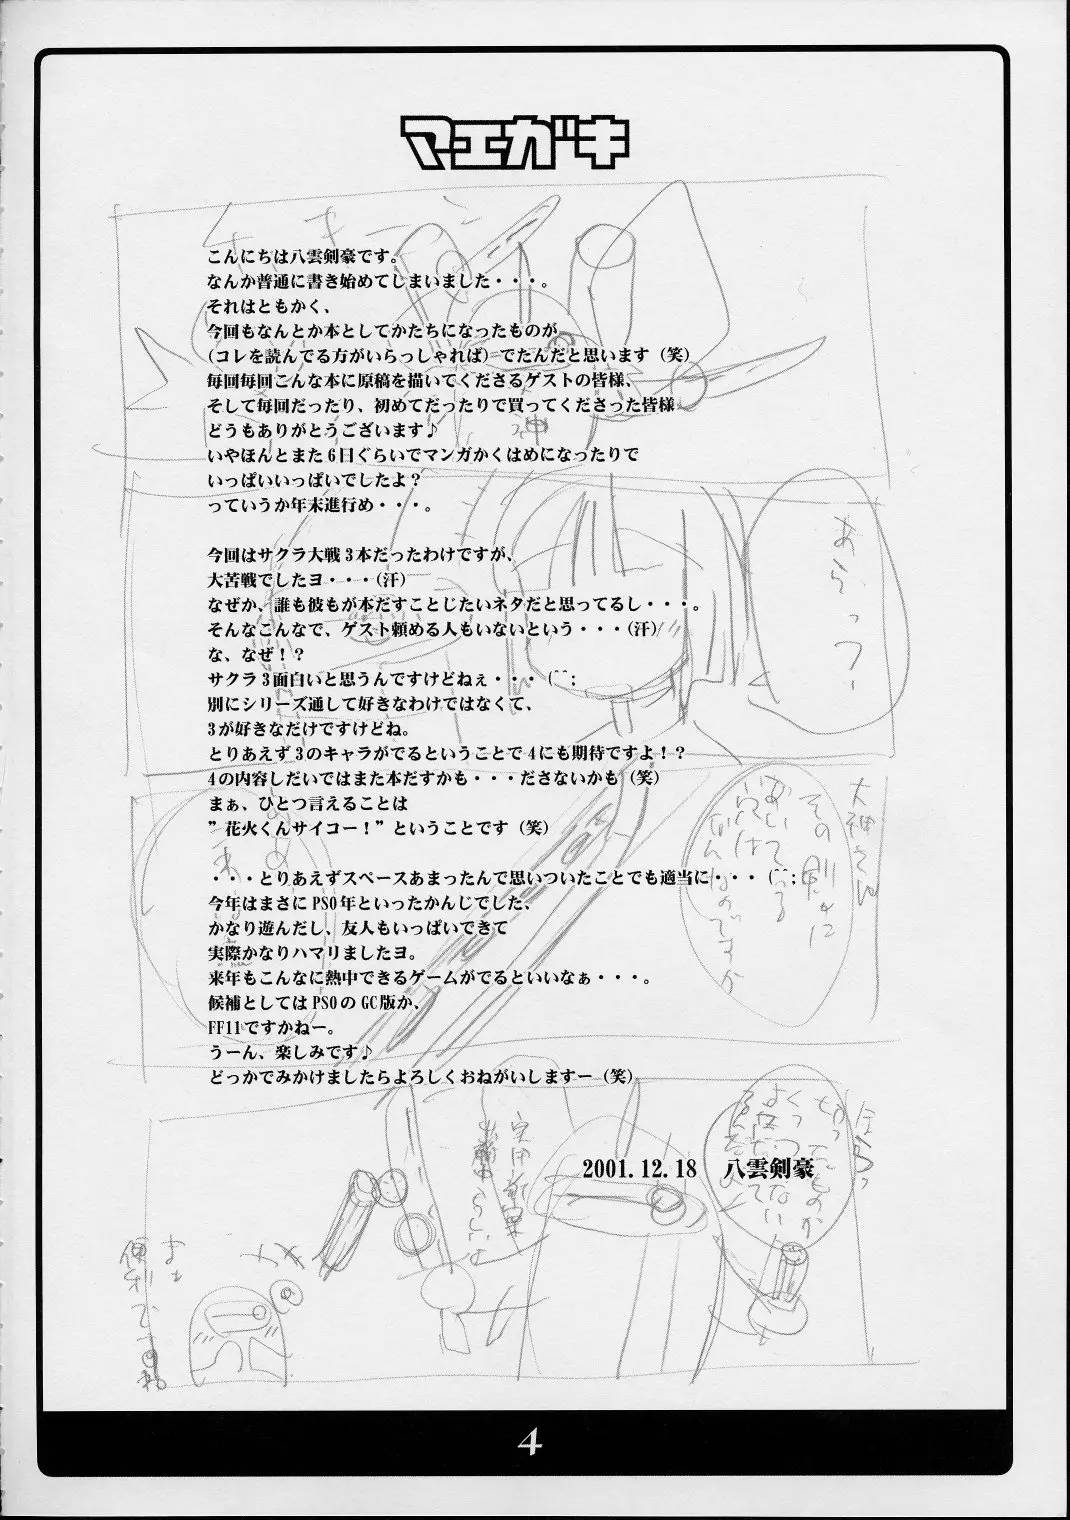 マエガキ
こんにちは八雲剣豪です。
なんか普通に書き始めてしまいました・・・。
それはともかく、
今回もなんとか本としてかたちになったものが
(コレを読んでる方がいらっしゃれば) でたんだと思います (笑)
毎回毎回こんな本に原稿を描いてくださるゲストの皆様、
そして毎回だったり、初めてだったりで買ってくださった皆様
どうもありがとうございます♪
いやほんとまた6日ぐらいでマンガかくはめになったりで
いっぱいいっぱいでしたよ？
っていうか年末進行め・・・。
今回はサクラ大戦3本だったわけですが、
大苦戦でしたヨ・・・(汗)
なぜか、誰も彼もが本だすことじたいネタだと思ってるし・・・。
そんなこんなで、ゲスト頼める人もいないという・・・(汗)
な、なぜ！？
サクラ3面白いと思うんですけどねぇ・・・ (^^;
別にシリーズ通して好きなわけではなくて、
3が好きなだけですけどね。
とりあえず3のキャラがでるということで4にも期待ですよ！？
4の内容しだいではまた本だすかも・・・ださないかも (笑)
まぁ、ひとつ言えることは
”花火くんサイコー！”ということです (笑)
・・・とりあえずスペースあまったんで思いついたことでも適当に・・・ (^^;
今年はまさにPSO年といったかんじでした、
かなり遊んだし、友人もいっぱいできて
実際かなりハマリましたヨ。
来年もこんなに熱中できるゲームがでるといいなぁ・・・。
候補としてはPSOのGC版か、
FF11ですかねー。
うーん、楽しみです♪
どっかでみかけましたらよろしくおねがいしますー (笑)
2001.12.18 八雲剣豪
あらっ
大神さん
その剣に
あいている
穴は
なんなのですか
4